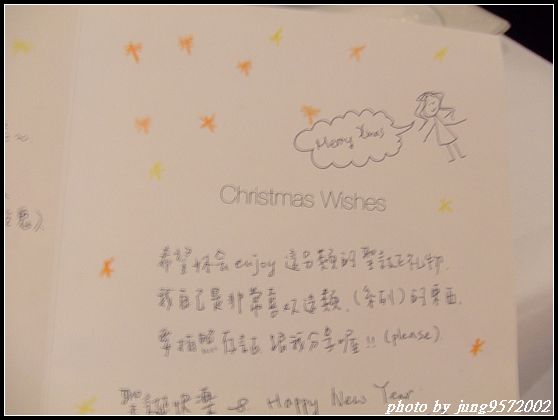 Merry Xmas
Christmas Wishes
希望妳会enjoy 這另類的聖誕礼物.
我自己是非常喜欢這類(系列)的東西.
要拍照存証 跟我分享喔!! (please).
聖誕快樂 & Happy New Year.
photo by jung9572002